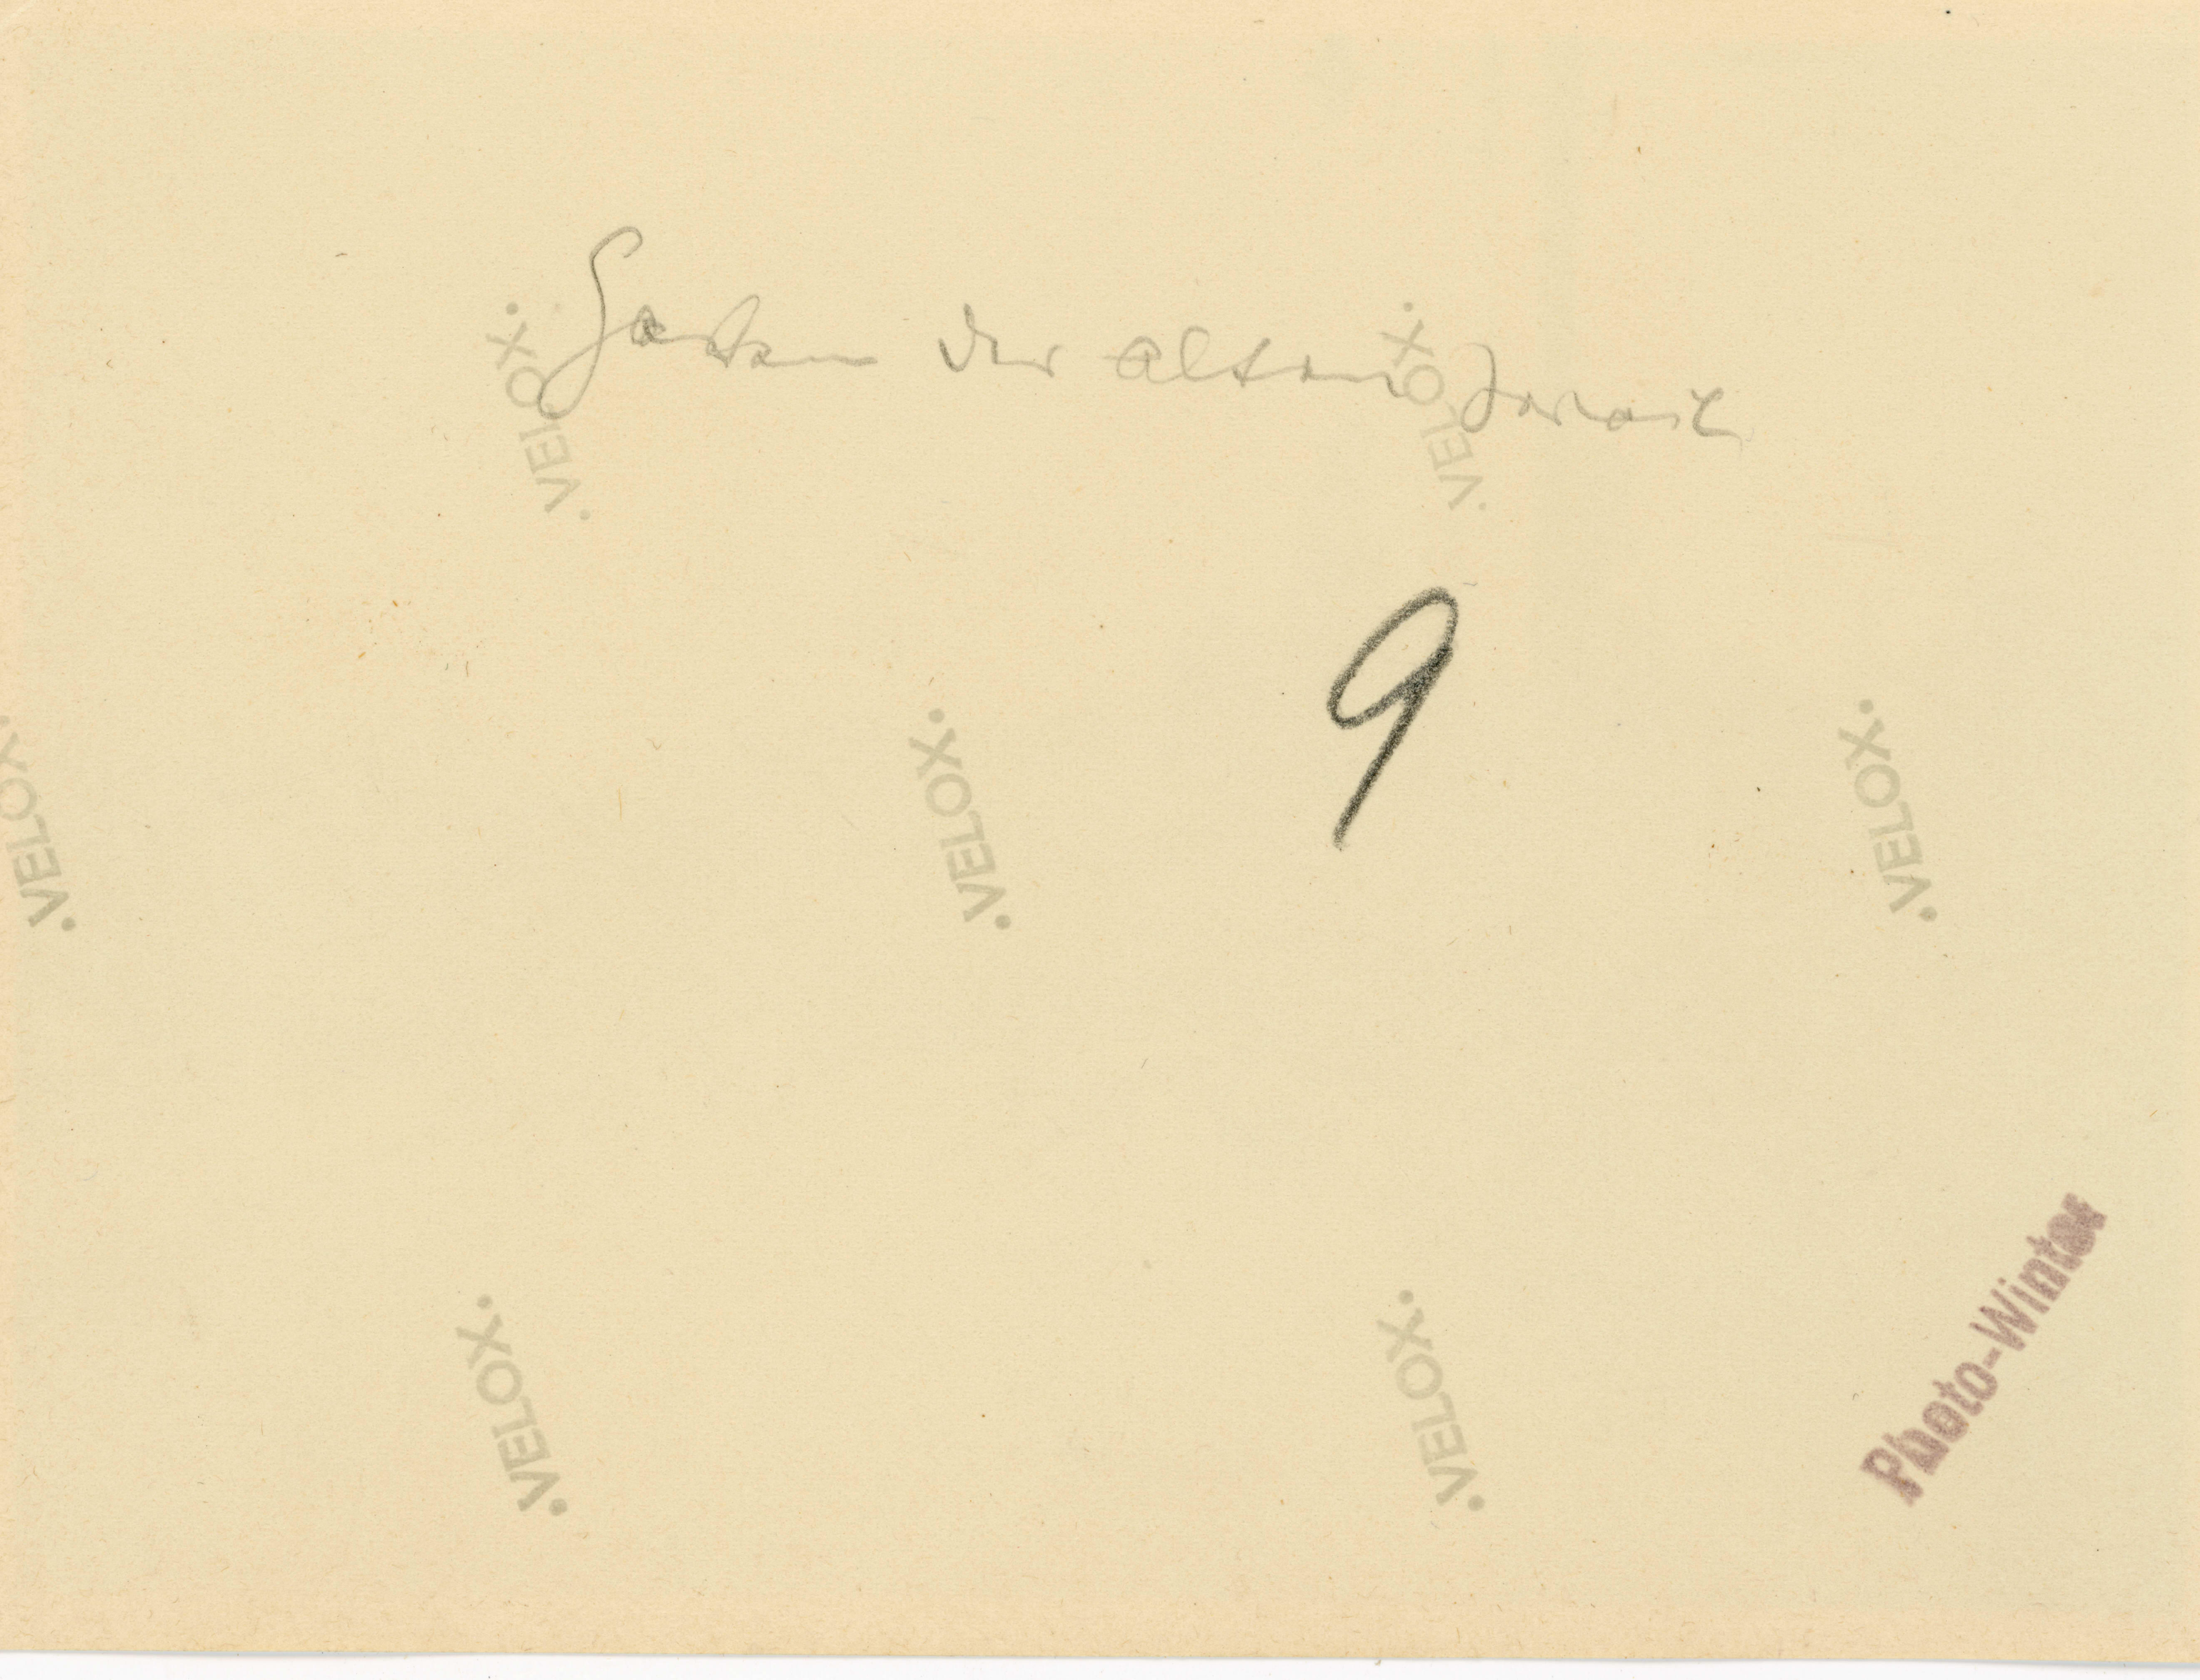 Garten der alten
·VELOX·
·VELOX·
9
·VELOX·
·VELOX·
·VELOX·
·VELOX·
·VELOX·
Photo-Winter